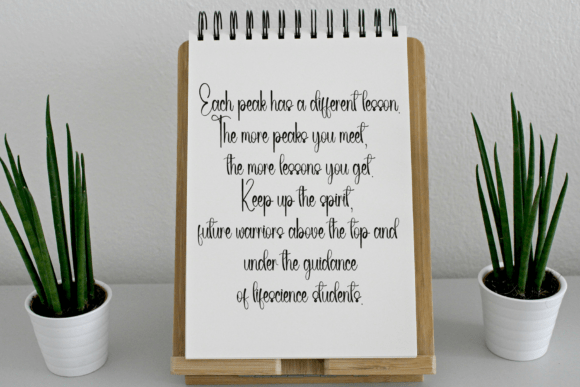 Each peak has a different lesson.
The more peaks you meet,
the more lessons you get.
Keep up the spirit,
future warriors above the top and
under the guidance
of lifescience students.